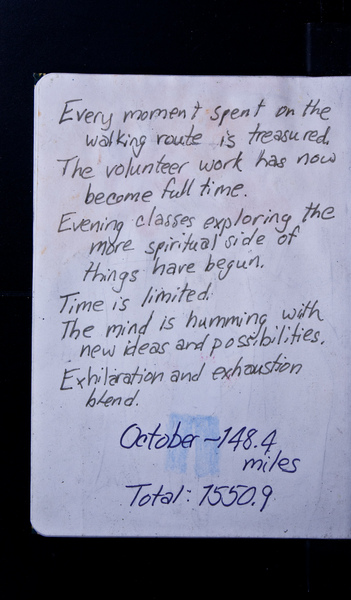 Every moment spent on the
walking route is treasured.
The volunteer work has now
become full time.
Evening classes exploring the
more spiritual side of
things have begun.
Time is limited.
The mind is humming with
new ideas and possibilities.
Exhilaration and exhaustion
blend.
October - 148.4
miles
Total: 1550.9